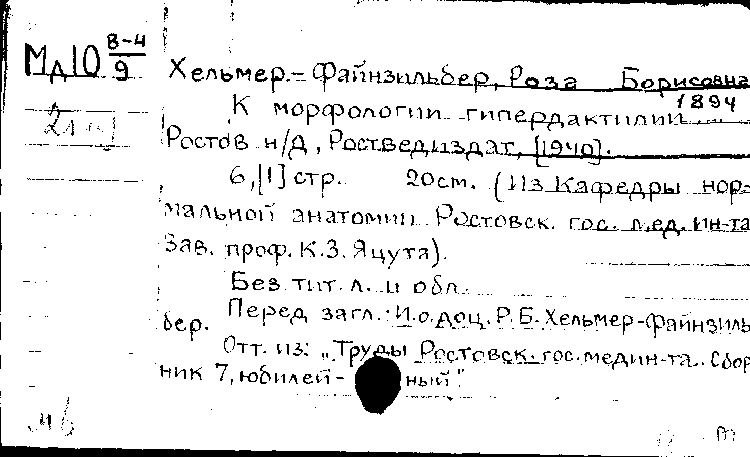 Мд10 8-4/9
Хельмер-Файнзильбер, Роза Борисовна
1894
К морфологии гипердактилии. ...
Ростов н/Д, Роствediздат, [1940].
6,[1] стр. 20см. (Из Кафедры нор-
мальной анатомии Ростовск. гос. мед. ин-та
Зав. проф. К.З. Яцута).
Без тит. л. и обл.
Перед загл.: И.о.доц. Р.Б. Хельмер-Файнзиль-
бер.
Отт. из: „Труды Ростовск. гос. мед ин-та. Сбор
ник 7, юбилей-ный".